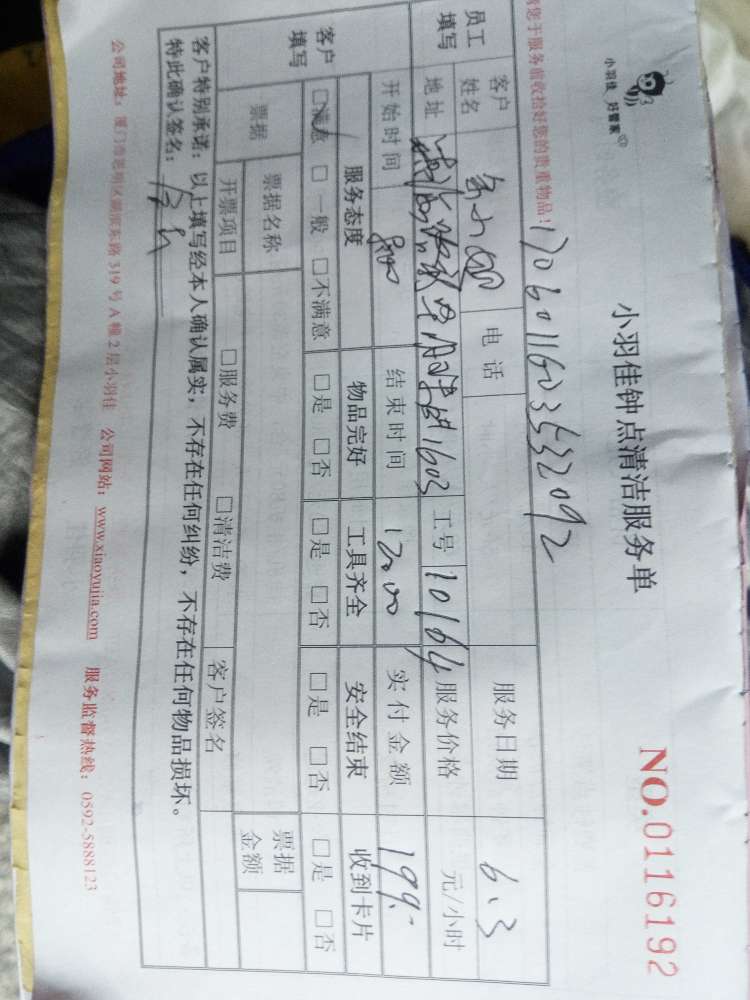 小羽佳 好管家
小羽佳钟点清洁服务单
NO.0116192
请您于服务前收拾好您的贵重物品！
1706011603532092
员工填写
客户姓名
电话
服务日期 6.3
地址 1603
工号 10164
服务价格 元/小时
开始时间 800
结束时间 1200
实付金额 199.-
客户填写
服务态度 物品完好 工具齐全 安全结束 收到卡片
□满意 □一般 □不满意 □是 □否 □是 □否 □是 □否 □是 □否
票据
票据名称
票据金额
开票项目 □服务费 □清洁费 客户签名
客户特别承诺：以上填写经本人确认属实，不存在任何纠纷，不存在任何物品损坏。
特此确认签名：
公司地址：厦门市思明区湖滨东路319号A幢2层小羽佳 公司网站：www.xiaoyujia.com 服务监督热线：0592-5888123